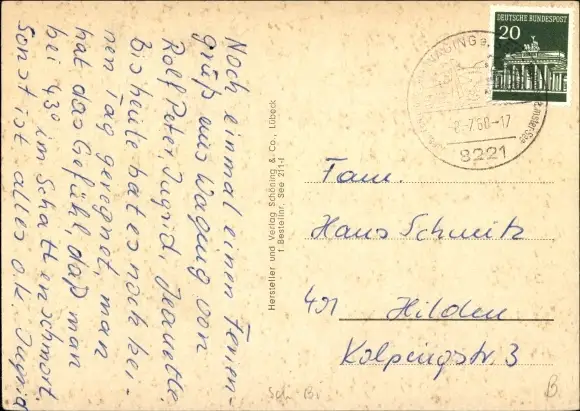 Noch einmal einen Ferien-
gruß aus Waging von
Rolf Peter, Ingrid, Jeanette.
Bis heute hat es noch kei-
nen Tag geregnet, man
hat das Gefühl, daß man
bei 43° im Schatten schmort.
Sonst ist alles o.k. Ingrid
Hersteller und Verlag Schöning & Co., Lübeck
† Bestellnr. See 211-f
DEUTSCHE BUNDESPOST
20
WAGING a.
-7.68-17
8221
Fam.
Hans Schmitz
401 Hilden
Kolpingstr. 3
B.